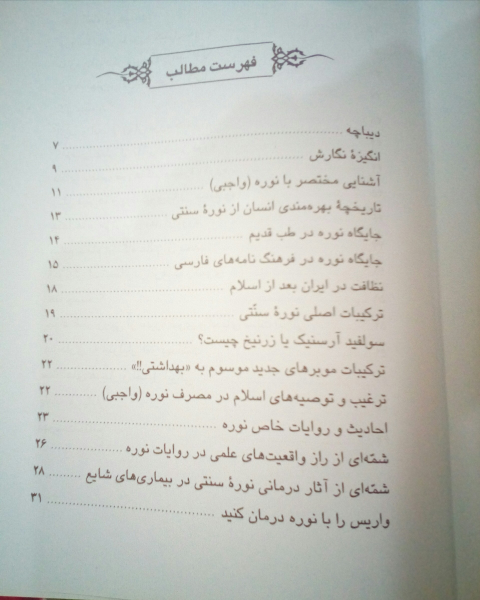 فهرست مطالب
دیباچه ........ ۷
انگیزهٔ نگارش ........ ۹
آشنایی مختصر با نوره (واجبی) ........ ۱۱
تاریخچهٔ بهره‌مندی انسان از نورهٔ سنتی ........ ۱۳
جایگاه نوره در طب قدیم ........ ۱۴
جایگاه نوره در فرهنگ نامه‌های فارسی ........ ۱۵
نظافت در ایران بعد از اسلام ........ ۱۸
ترکیبات اصلی نورهٔ سنّتی ........ ۱۹
سولفید آرسنیک یا زرنیخ چیست؟ ........ ۲۰
ترکیبات موبرهای جدید موسوم به «بهداشتی!!» ........ ۲۲
ترغیب و توصیه‌های اسلام در مصرف نوره (واجبی) ........ ۲۲
احادیث و روایات خاص نوره ........ ۲۳
شمّه‌ای از راز واقعیت‌های علمی در روایات نوره ........ ۲۶
شمّه‌ای از آثار درمانی نورهٔ سنتی در بیماری‌های شایع ........ ۲۸
واریس را با نوره درمان کنید ........ ۳۱